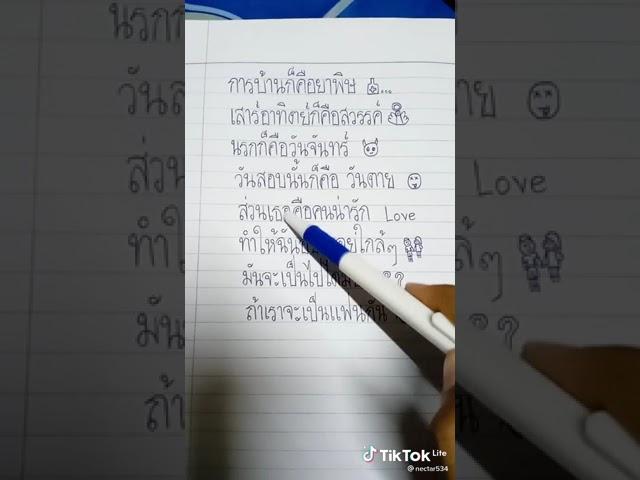 การบ้านก็คือยาพิษ ...
เสาร์อาทิตย์ก็คือสวรรค์
นรกก็คือวันจันทร์
วันสอบนั้นก็คือ วันตาย
ส่วนเธอคือคนน่ารัก Love
ทำให้ฉัน อยู่ใกล้ๆ
มันจะเป็นไปได้ ??
ถ้าเราจะเป็นแฟนกัน
TikTok Lite
@nectar534